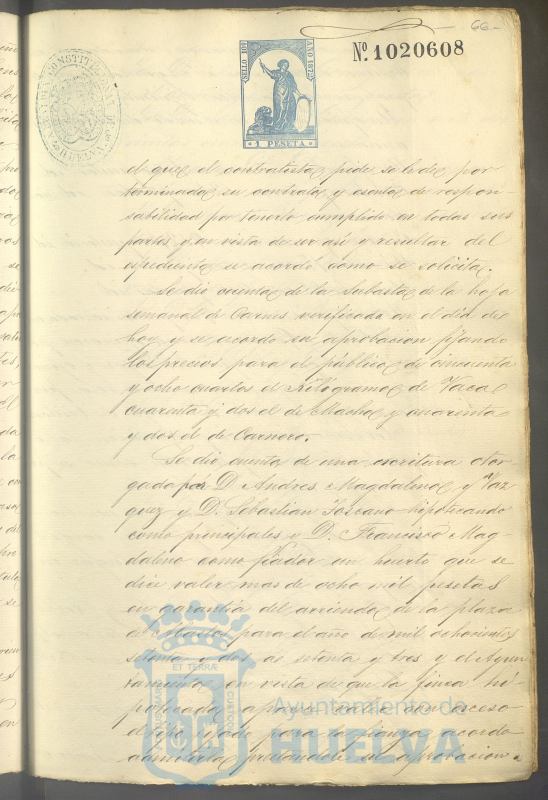 66-
Nº. 1020608
SELLO 10º
AÑO 1872
1 PESETA
HUELVA
el que el contratista pide se le de por
terminada su contrata y esento de respon-
sabilidad por tenerlo cumplido en todas sus
partes y en vista de ser así y resultar del
espediente se acordó como se solicita.
Se dio cuenta de la subasta de la hoja
semanal de Carnes verificada en el dia de
hoy y se acordó su aprobacion fijando
los precios para el público de cincuenta
y ocho cuartos el Kilógramo de Vaca
cuarenta y dos el de Macho y cuarenta
y dos el de Carnero.
Se dio cuenta de una escritura otor-
gada por D. Andres Magdalena y Vaz
quez y D. Sebastian Toscano hipotecando
como principales y D. Francisco Mag-
dalena como fiador un huerto que se
dice valer mas de ocho mil pesetas
en garantia del arriendo de la plaza
de para el año de mil ochocientos
setenta y dos as setenta y tres y el Ayun
tamiento en vista de que la finca hi-
potecada aparece
para la fianza acordó
admitirla prestandole su aprobacion.
ET TERRÆ
PORTUS MARIS
CUSTODIA
Ayuntamiento de
HUELVA